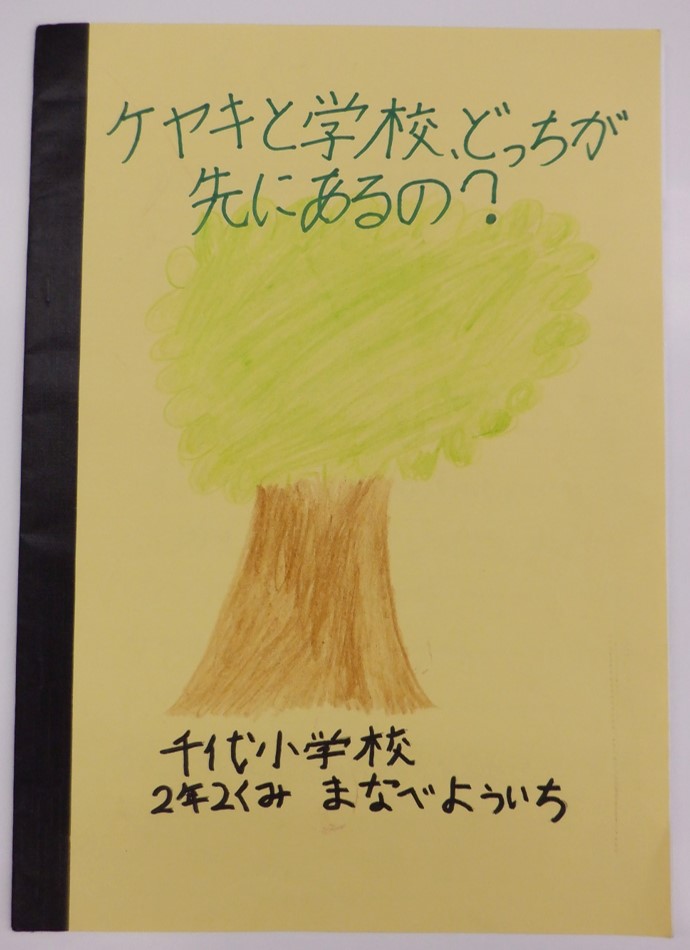 ケヤキと学校、どっちが
先にあるの？
千代小学校
2年2くみ まなべよういち